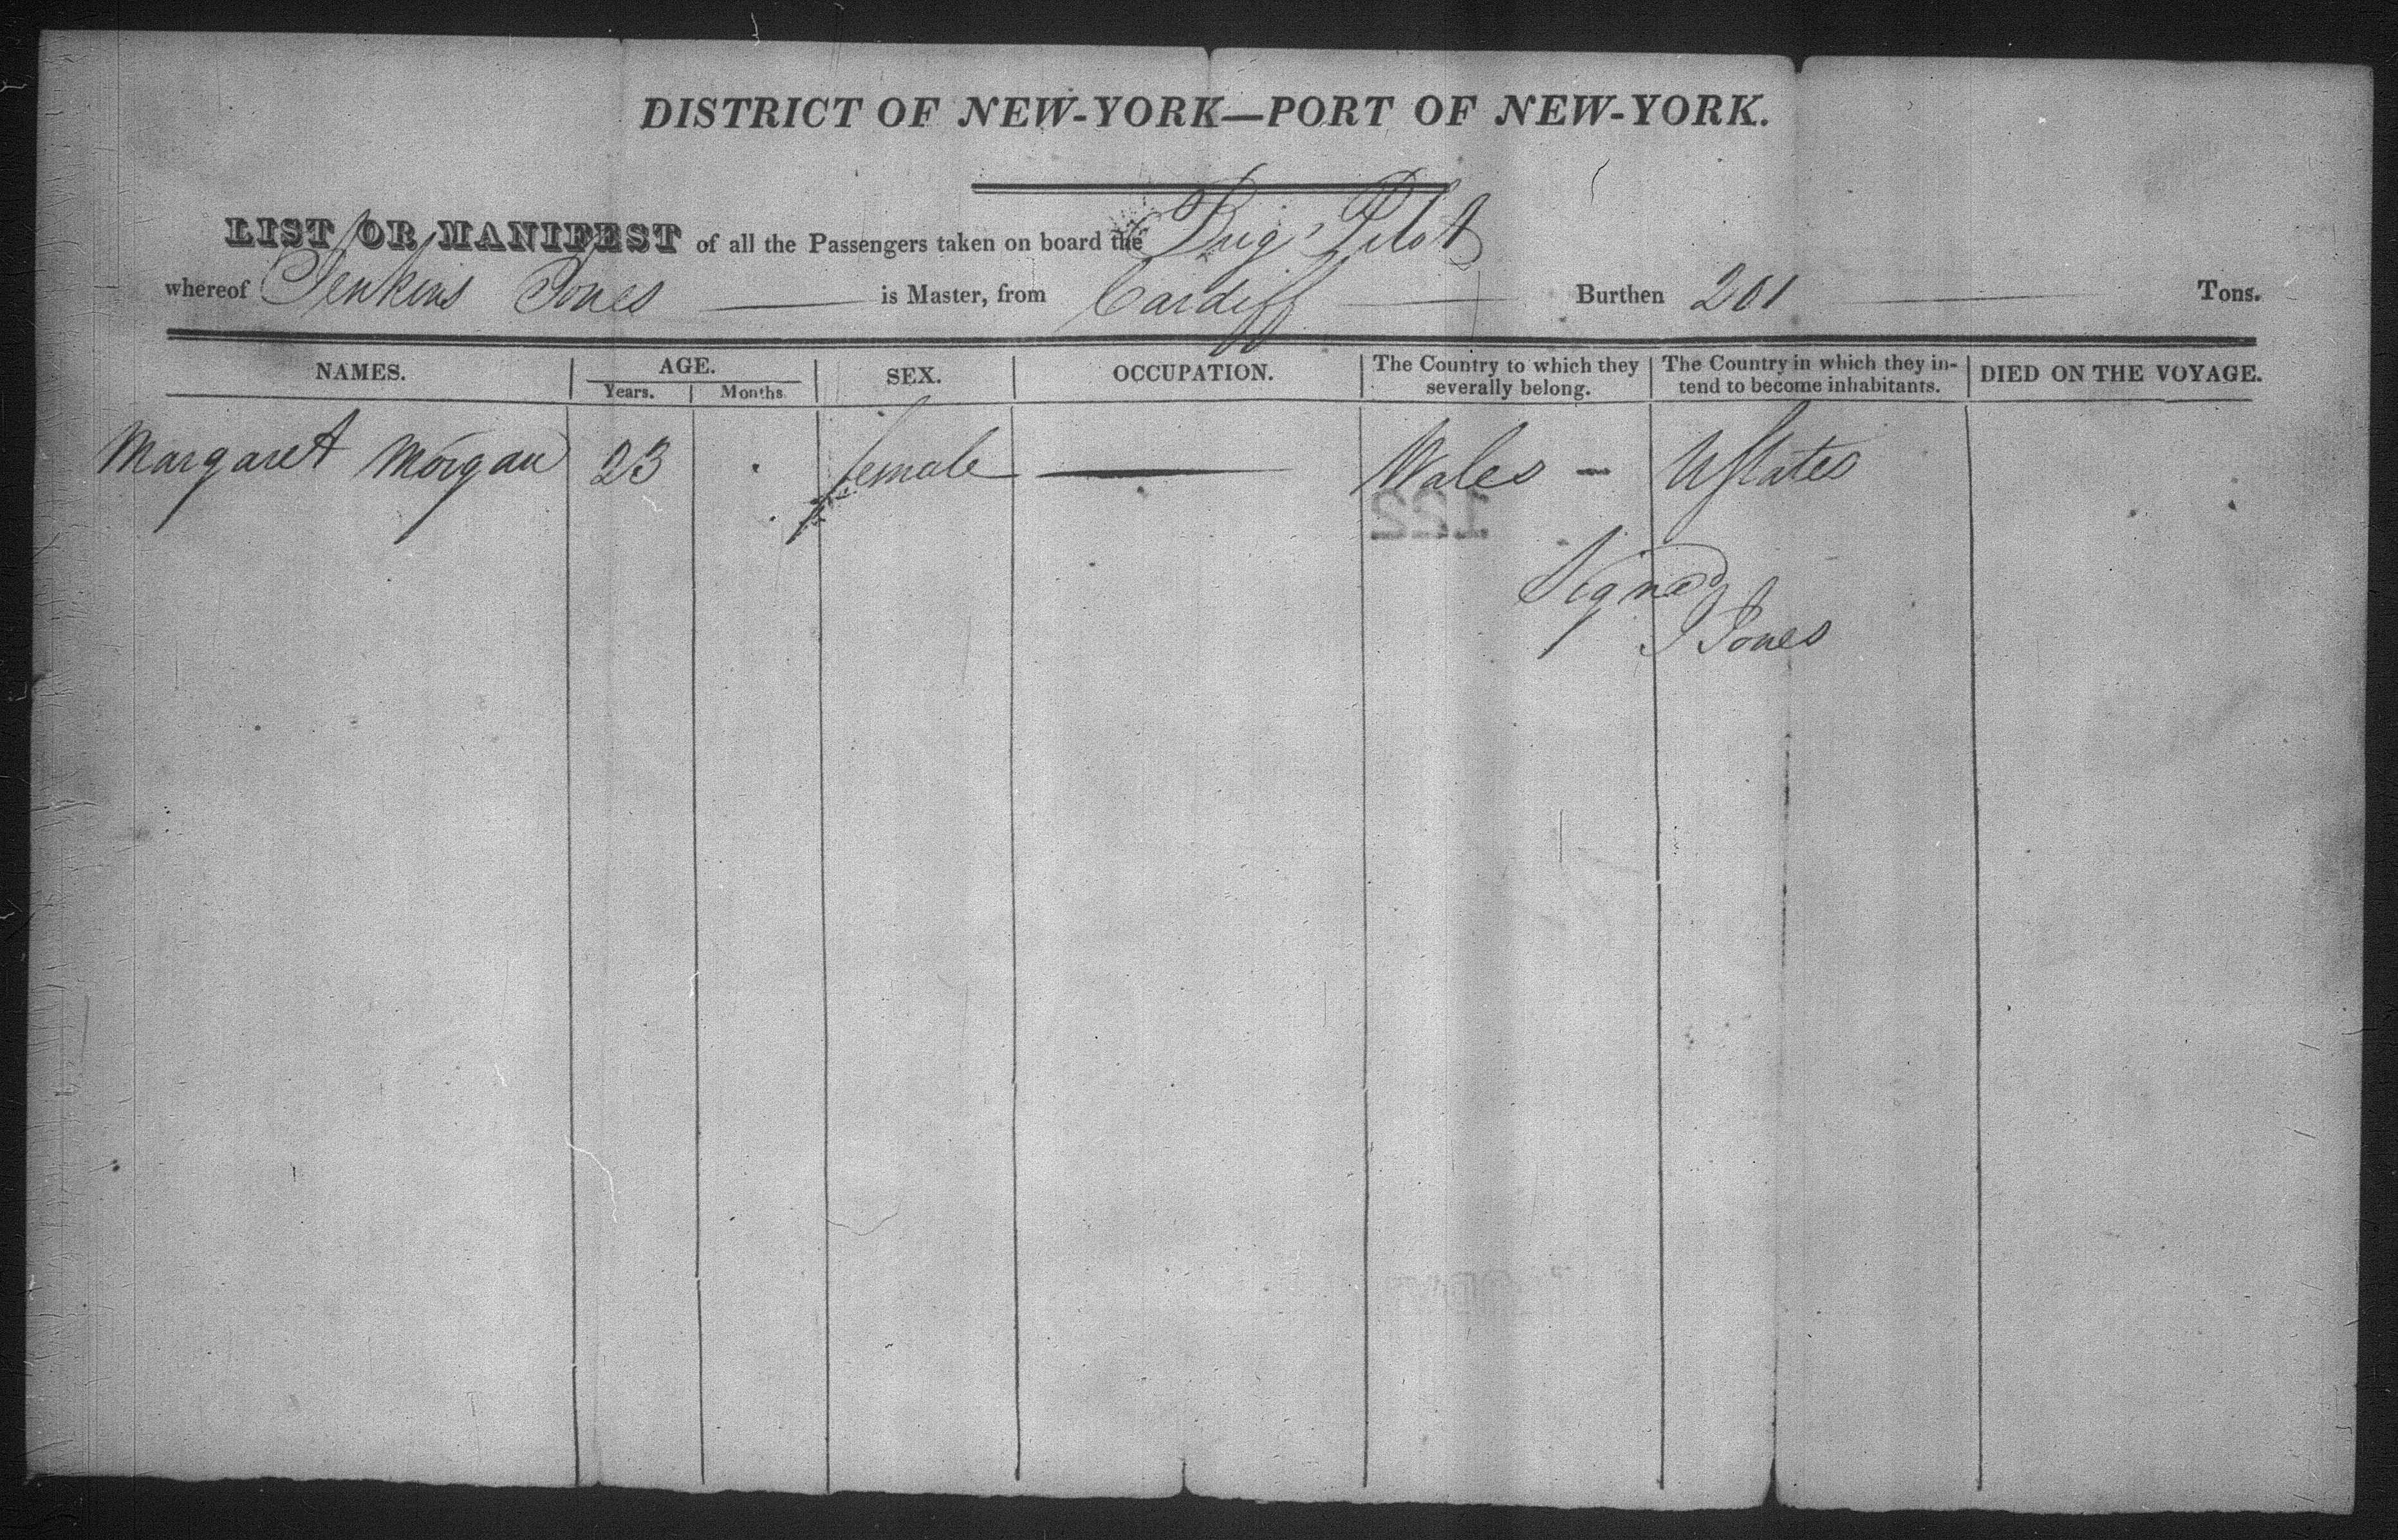 DISTRICT OF NEW-YORK—PORT OF NEW-YORK.
LIST OR MANIFEST of all the Passengers taken on board the Brig Pilot
whereof Jenkins Jones is Master, from Cardiff Burthen 201 Tons.
NAMES. AGE. SEX. OCCUPATION. The Country to which they severally belong. The Country in which they in-tend to become inhabitants. DIED ON THE VOYAGE.
Years. Months.
Margaret Morgan 23 female — Wales — UStates
122
Signed
J Jones